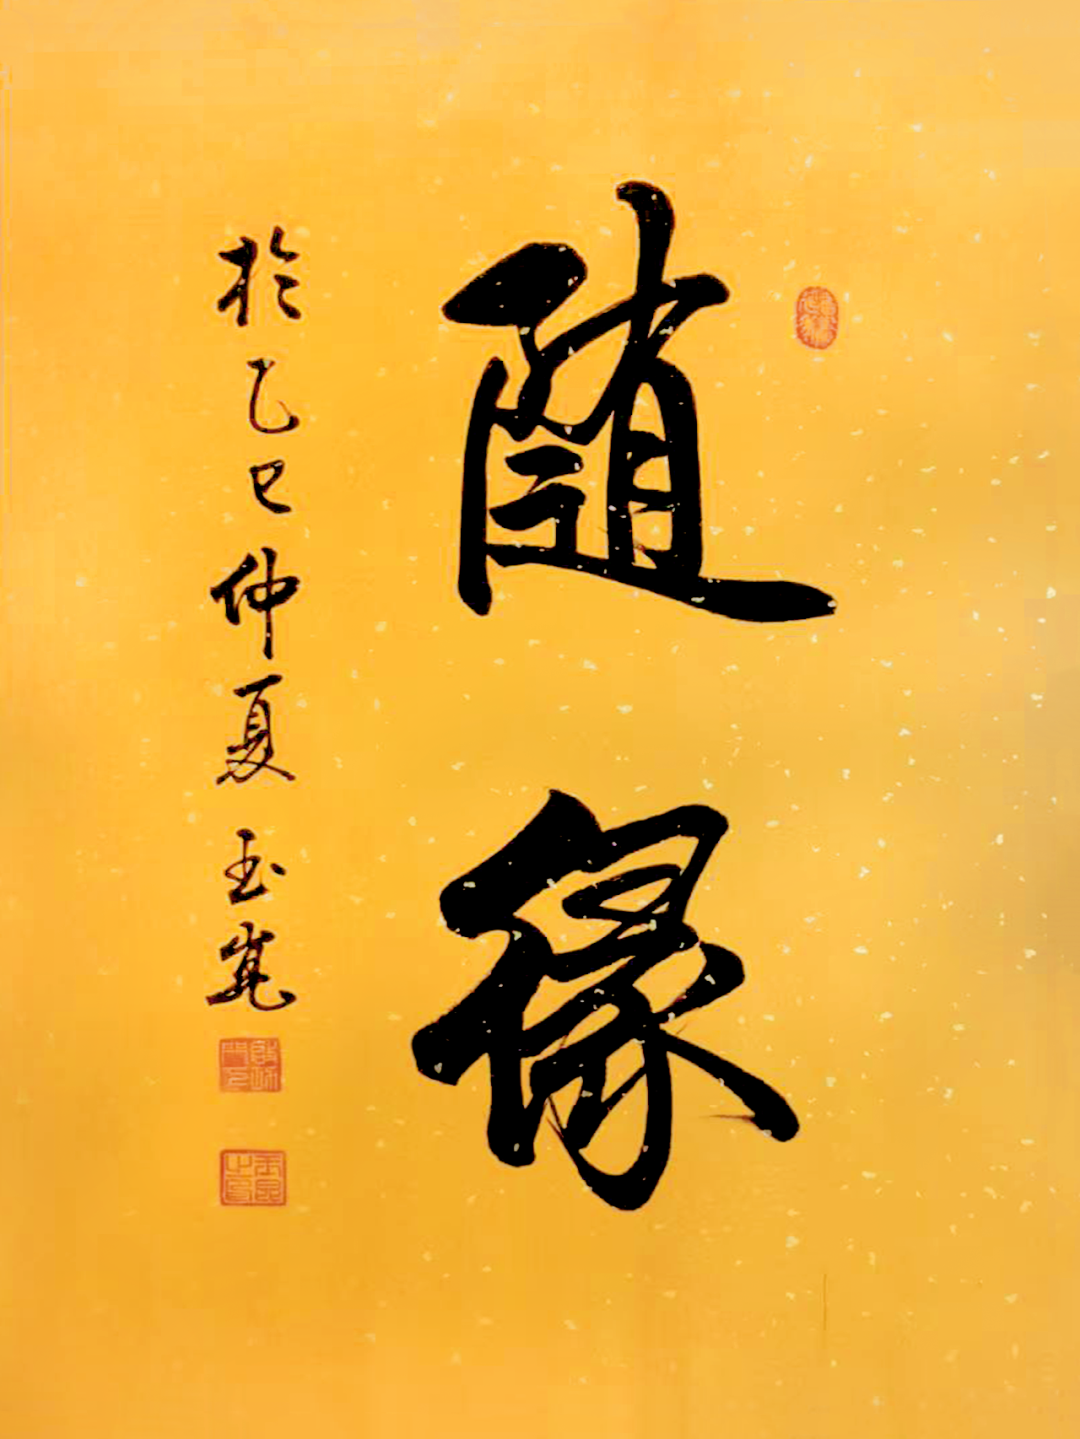 随缘
於乙巳仲夏玉崑